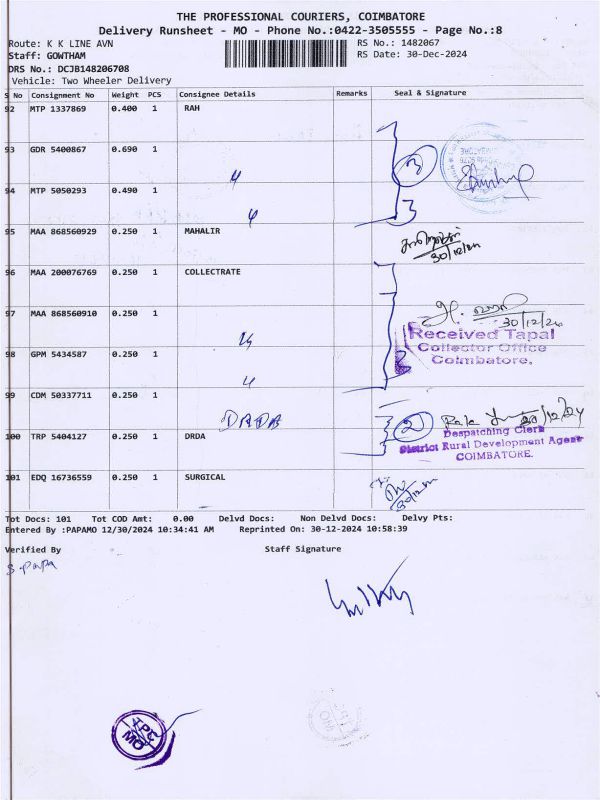 THE PROFESSIONAL COURIERS, COIMBATORE
Delivery Runsheet - MO - Phone No.:0422-3505555 - Page No.:8
Route: K K LINE AVN RS No.: 1482067
Staff: GOWTHAM RS Date: 30-Dec-2024
DRS No.: DCJB148206708
Vehicle: Two Wheeler Delivery
S No Consignment No Weight PCS Consignee Details Remarks Seal & Signature
92 MTP 1337869 0.400 1 RAH
93 GDR 5400867 0.690 1
3
4
94 MTP 5050293 0.490 1
4
95 MAA 868560929 0.250 1 MAHALIR
30/12/24
96 MAA 200076769 0.250 1 COLLECTRATE
97 MAA 868560910 0.250 1
30/12/24
Received Tapal
Collector Office
Coimbatore.
98 GPM 5434587 0.250 1
4
99 CDM 50337711 0.250 1
DRDA
2
Despatching Clerk
100 TRP 5404127 0.250 1 DRDA
District Rural Development Agency
COIMBATORE.
101 EDQ 16736559 0.250 1 SURGICAL
Tot Docs: 101 Tot COD Amt: 0.00 Delvd Docs: Non Delvd Docs: Delvy Pts:
Entered By :PAPAMO 12/30/2024 10:34:41 AM Reprinted On: 30-12-2024 10:58:39
Verified By Staff Signature
S.papa
TPC
MO